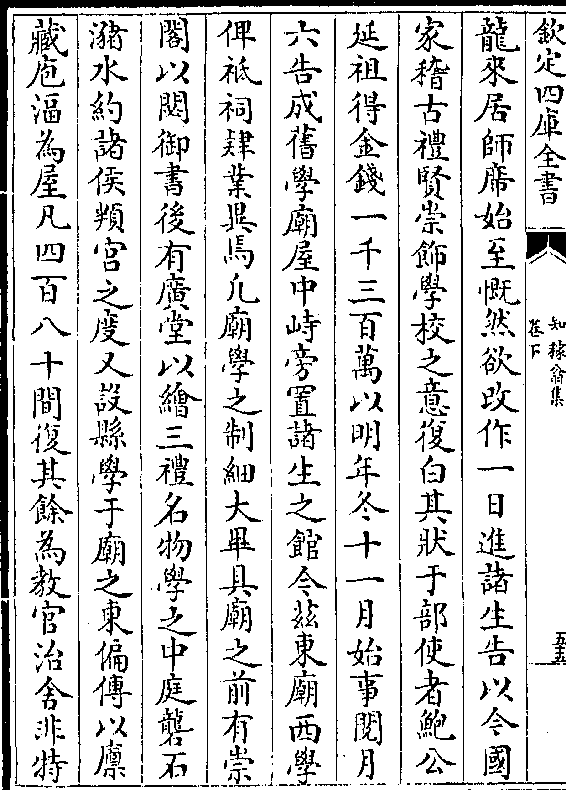 欽定四庫全書
知稼翁集
卷下
五五
龍來居師席始至慨然欲改作一日進諸生告以今國
家稽古禮賢崇飾學校之意復白其狀于部使者鮑公
延祖得金錢一千三百萬以明年冬十一月始事閱月
六告成舊學廟屋中峙旁置諸生之館今茲東廟西學
俾祗祠肄業異焉凡廟學之制細大畢具廟之前有崇
閣以閟御書後有廣堂以繪三禮名物學之中庭礱石
瀦水約諸侯頖宮之度又設縣學于廟之東偏傅以廩
藏庖湢為屋凡四百八十間復其餘為教官治舍非特